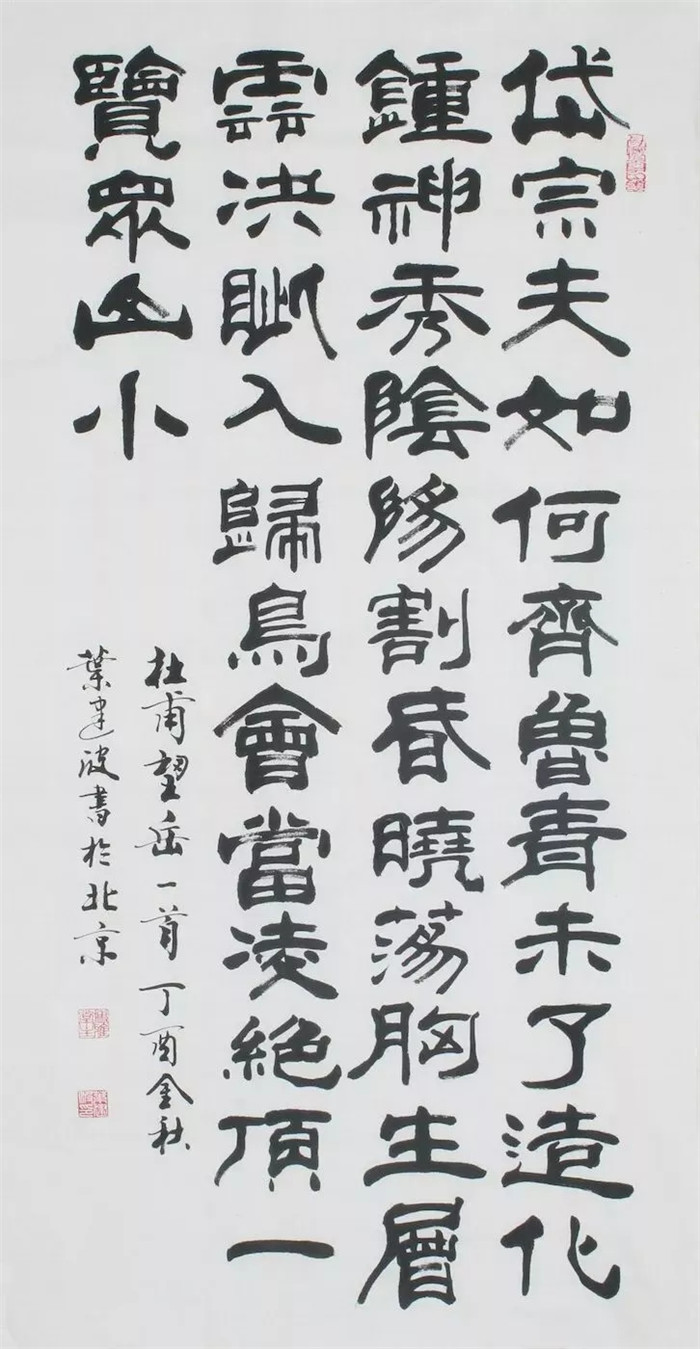 岱宗夫如何齊魯青未了造化
鍾神秀陰陽割昏曉蕩胸生層
雲決眦入歸鳥會當凌絕頂一
覽眾山小
杜甫望岳一首丁酉金秋
葉建波書於北京